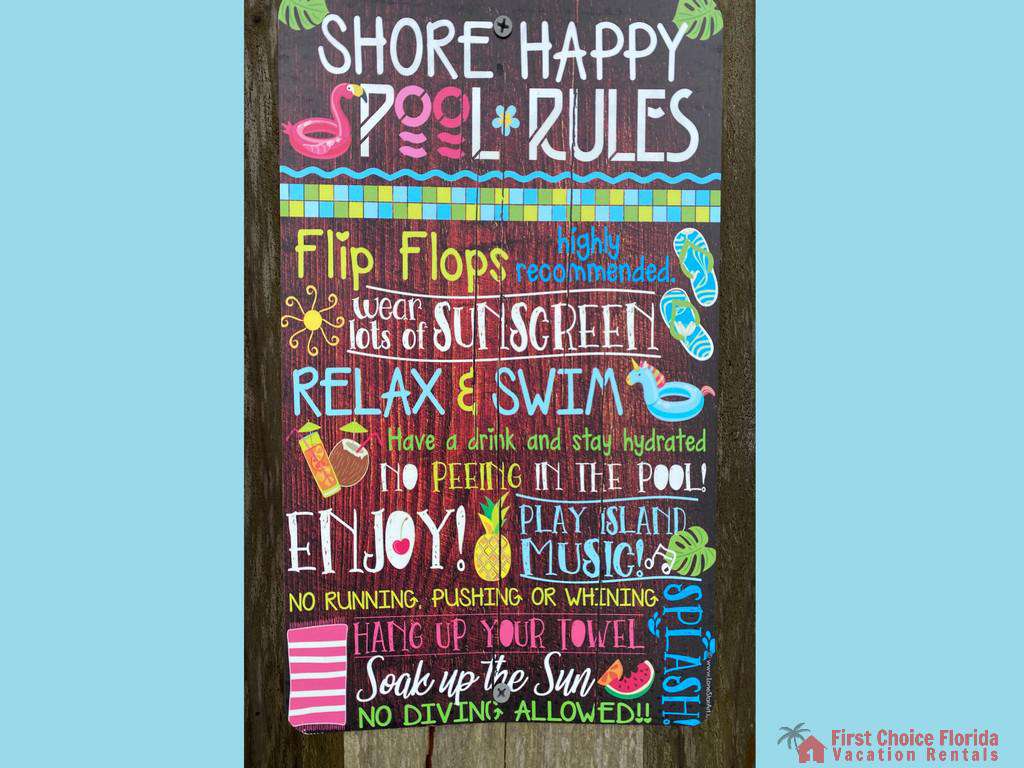 SHORE HAPPY
POOL RULES
Flip Flops highly recommended.
wear lots of SUNSCREEN
RELAX & SWIM
Have a drink and stay hydrated
NO PEEING IN THE POOL!
ENJOY! PLAY ISLAND MUSIC!
NO RUNNING, PUSHING OR WHINING
SPLASH!
HANG UP YOUR TOWEL
Soak up the Sun
NO DIVING ALLOWED!!
First Choice Florida
Vacation Rentals